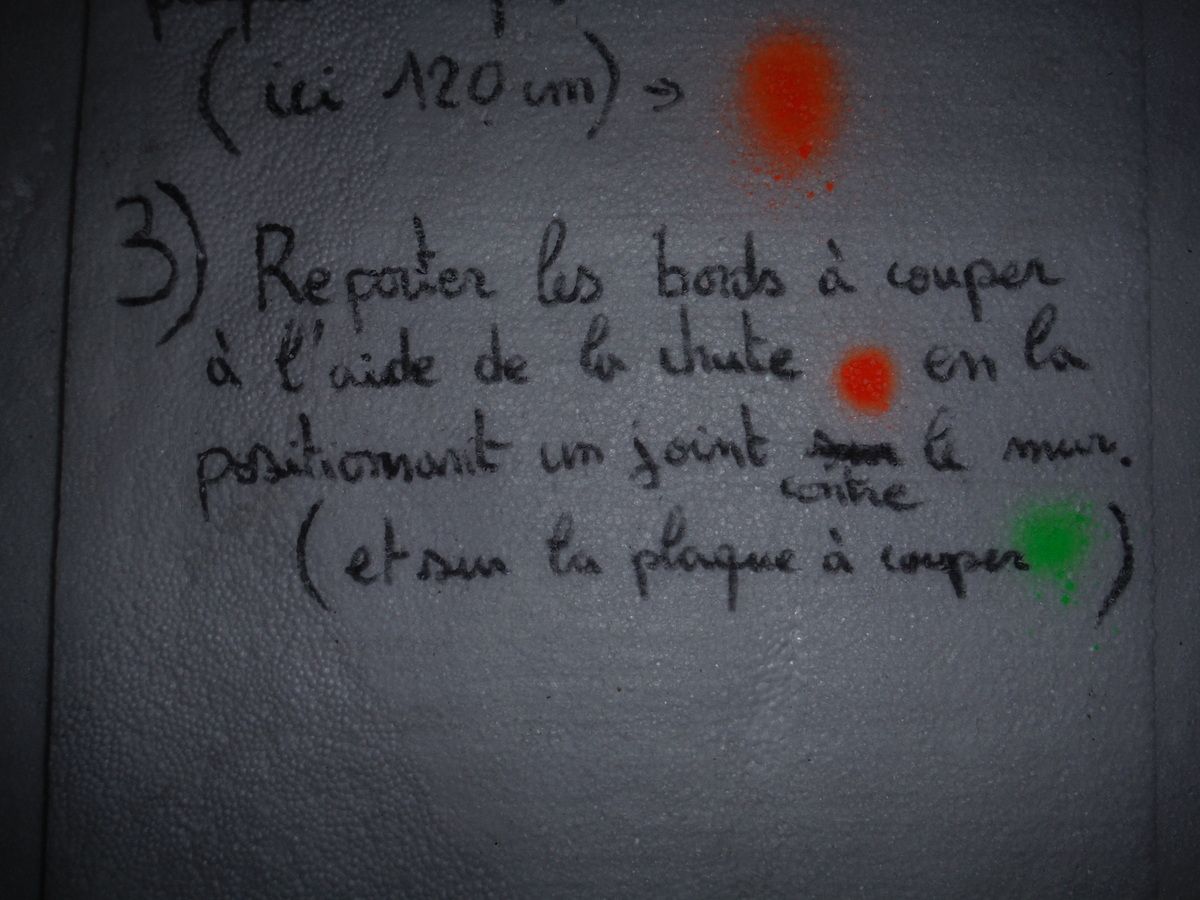 (ici 120 cm) →
3) Reporter les bords à couper
à l'aide de la chute en la
positionnant un joint contre le mur.
(et sur la plaque à couper)